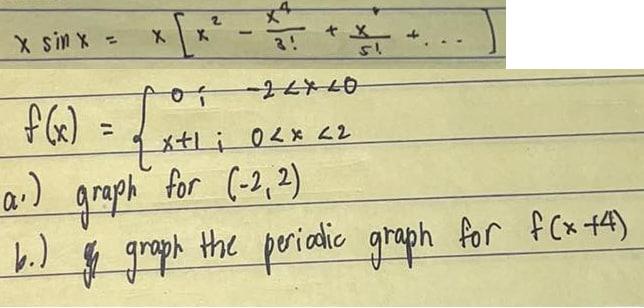 x sin x = x [ x² - x⁴/3! + x/5! + ... ]
f(x) = { 0 ; -2 < x < 0
x+1 ; 0 < x < 2
a.) graph for (-2, 2)
b.) graph the periodic graph for f(x+4)